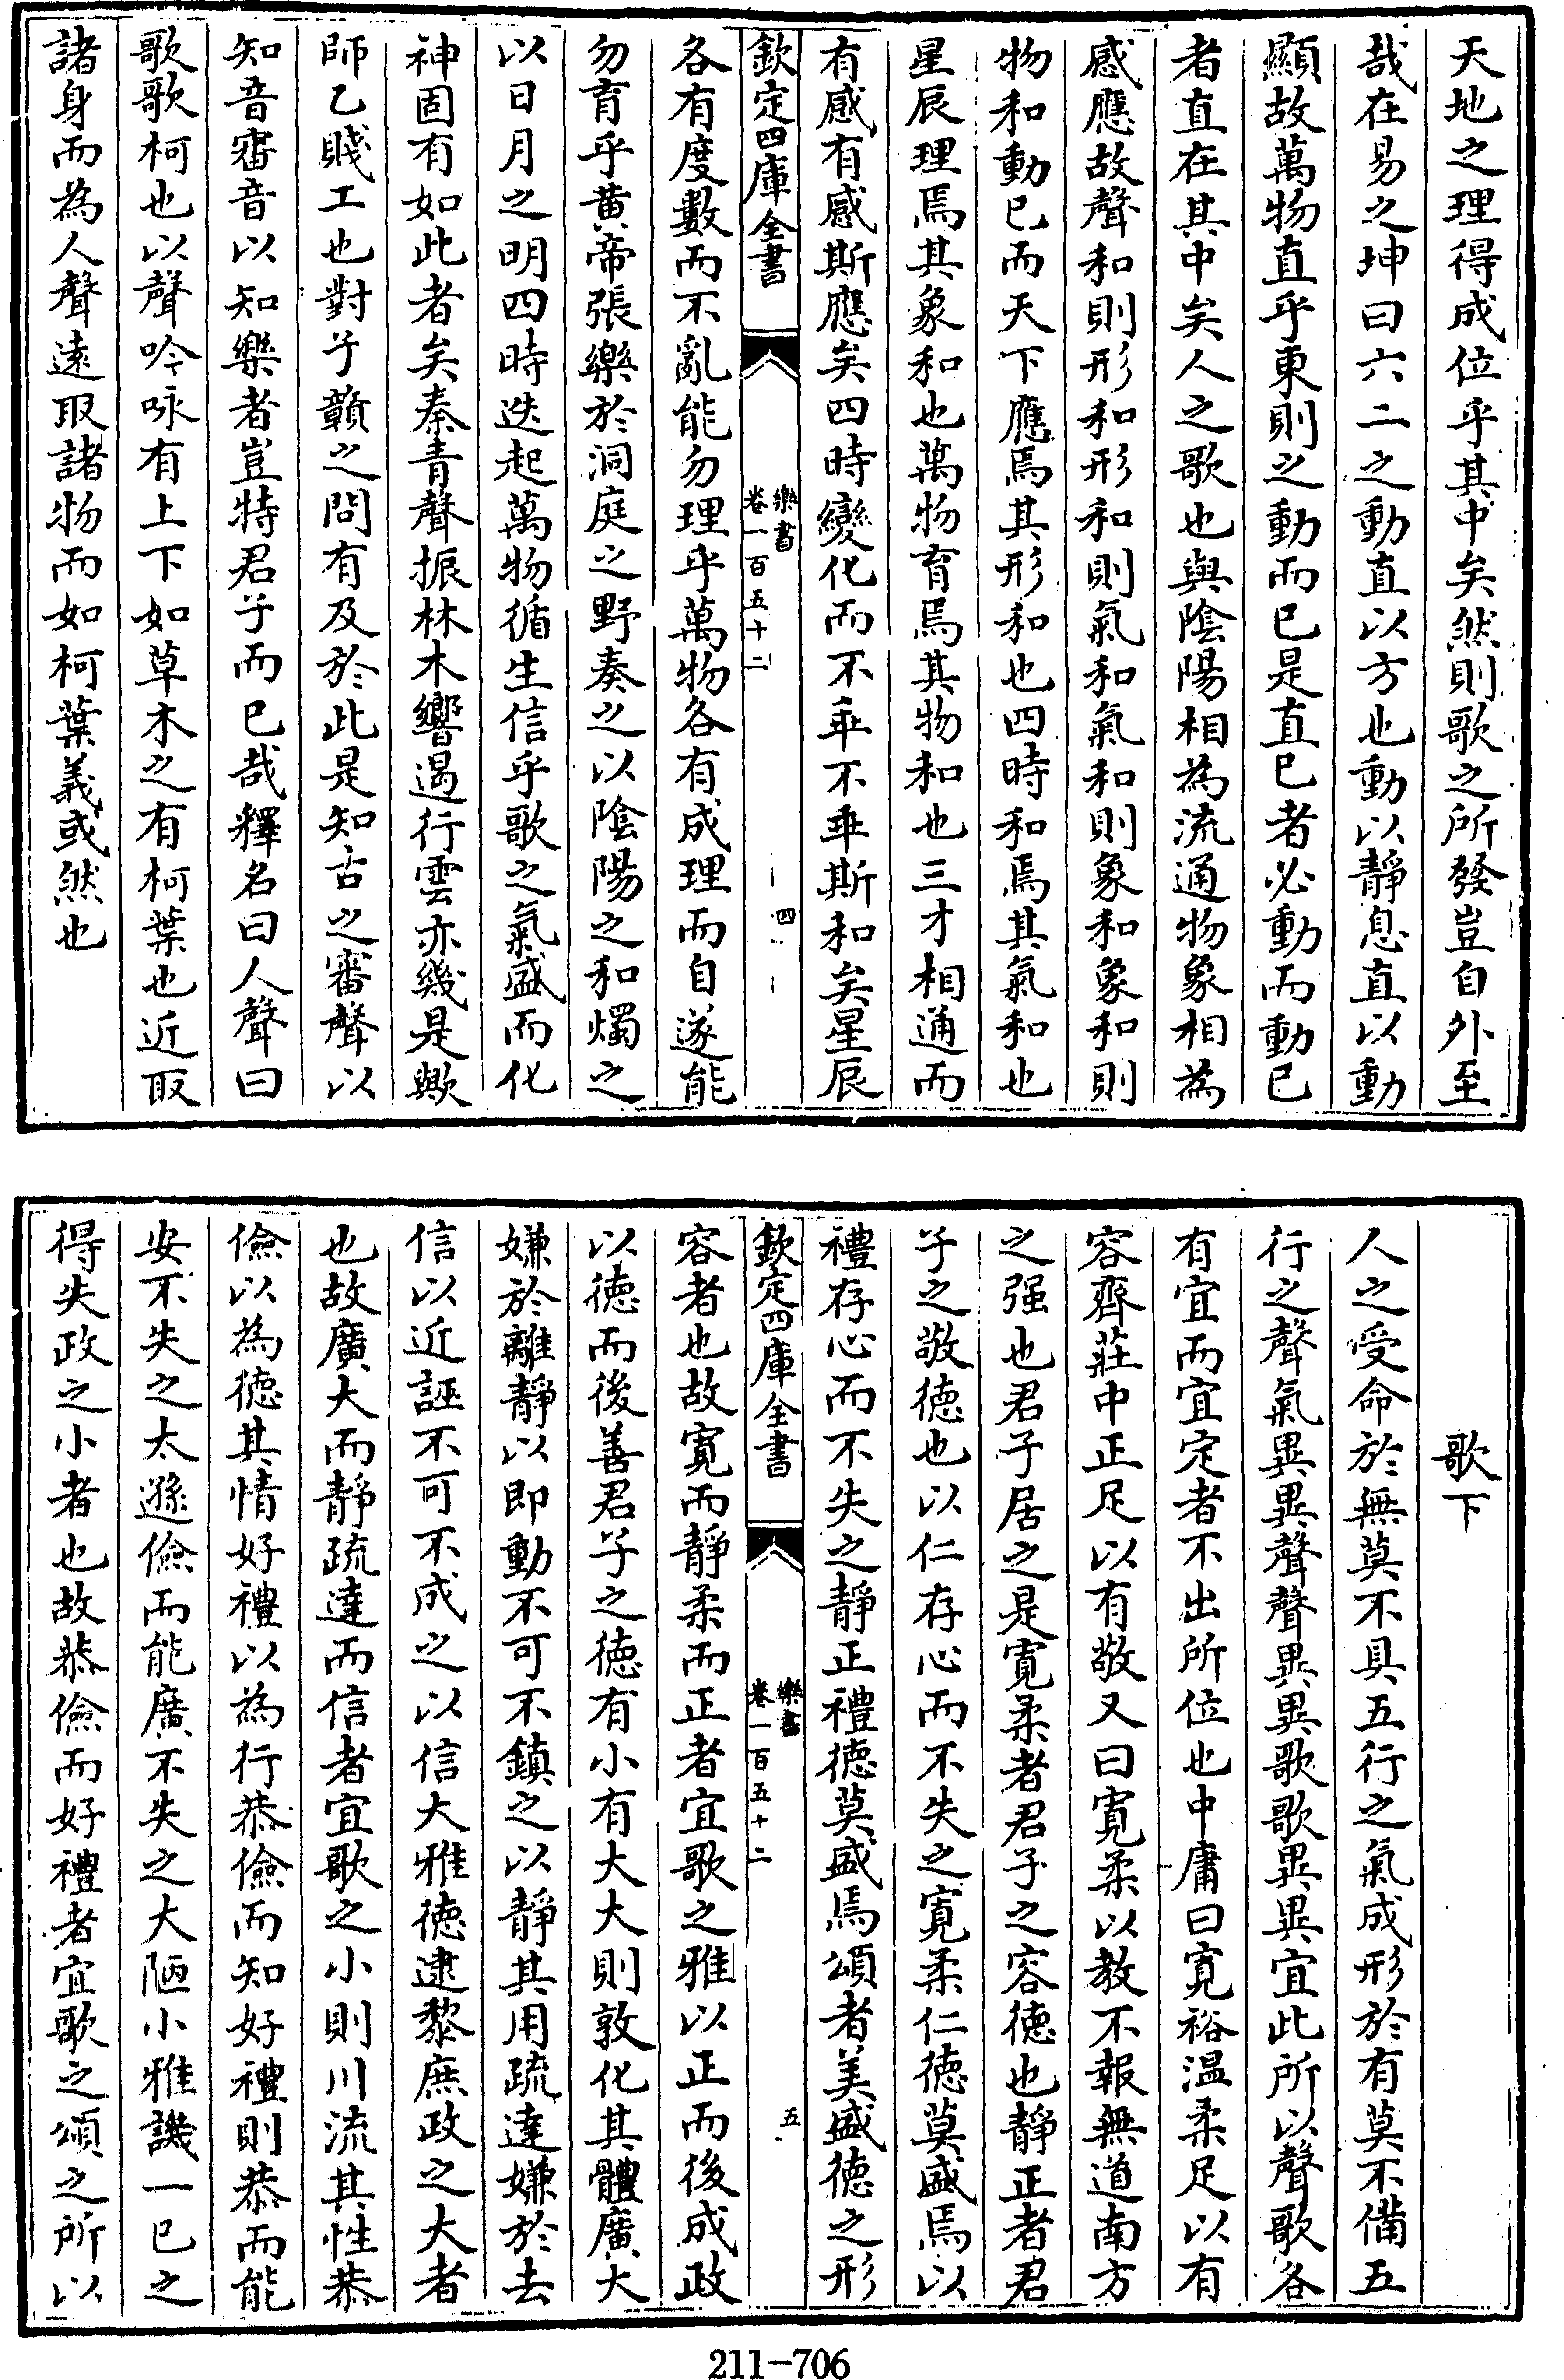 天地之理得成位乎其中矣然則歌之所發豈自外至
哉在易之坤曰六二之動直以方也動以靜息直以動
顯故萬物直乎東則之動而已是直已者必動而動已
者直在其中矣人之歌也與陰陽相為流通物象相為
感應故聲和則形和形和則氣和氣和則象和象和則
物和動已而天下應焉其形和也四時和焉其氣和也
星辰理焉其象和也萬物育焉其物和也三才相通而
有感有感斯應矣四時變化而不乖不乖斯和矣星辰
欽定四庫全書
樂書
卷一百五十二
四
各有度數而不亂能勿理乎萬物各有成理而自遂能
勿育乎黄帝張樂於洞庭之野奏之以陰陽之和燭之
以日月之明四時迭起萬物循生信乎歌之氣盛而化
神固有如此者矣秦青聲振林木響遏行雲亦幾是歟
師乙賤工也對子贛之問有及於此是知古之審聲以
知音審音以知樂者豈特君子而已哉釋名曰人聲曰
歌歌柯也以聲吟咏有上下如草木之有柯葉也近取
諸身而為人聲遠取諸物而如柯葉義或然也
歌下
人之受命於無莫不具五行之氣成形於有莫不備五
行之聲氣異異聲聲異異歌歌異異宜此所以聲歌各
有宜而宜定者不出所位也中庸曰寛裕温柔足以有
容齊莊中正足以有敬又曰寛柔以教不報無道南方
之强也君子居之是寛柔者君子之容德也靜正者君
子之敬德也以仁存心而不失之寛柔仁德莫盛焉以
禮存心而不失之靜正禮德莫盛焉頌者美盛德之形
欽定四庫全書
樂書
卷一百五十二
五
容者也故寛而靜柔而正者宜歌之雅以正而後成政
以德而後善君子之德有小有大大則敦化其體廣大
嫌於離靜以即動不可不鎮之以靜其用疏達嫌於去
信以近誣不可不成之以信大雅德逮黎庶政之大者
也故廣大而靜疏達而信者宜歌之小則川流其性恭
儉以為德其情好禮以為行恭儉而知好禮則恭而能
安不失之太遜儉而能廣不失之大陋小雅譏一已之
得失政之小者也故恭儉而好禮者宜歌之頌之所以
211-706